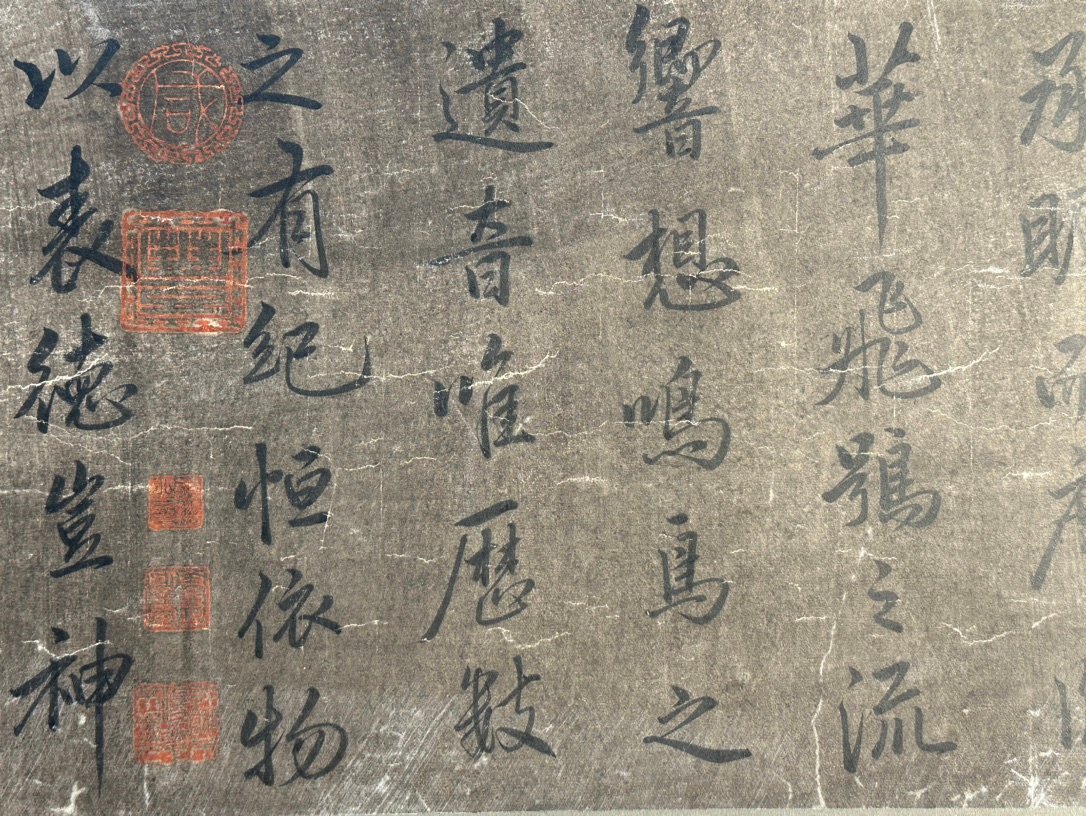 承
華飛鴞之流
響想鳴鳥之
遺音唯歷數
之有紀恒依物
以表德豈神